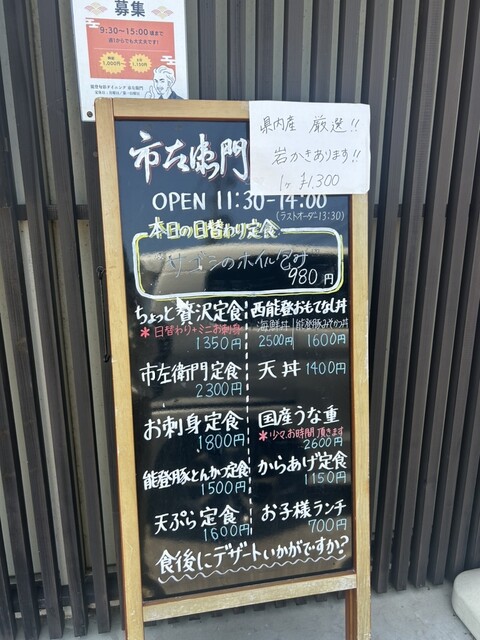 募集
9:30~15:00頃まで
週1からでも大丈夫です!
1,000円~
1,150円
県内産 厳選!!
岩かきあります!!
1ヶ ¥1,300
市左衛門
OPEN 11:30-14:00
(ラストオーダー13:30)
本日の日替わり定食
サゴシのホイル包み
980円
ちょっと贅沢定食
*日替わり+ミニお刺身
1350円
市左衛門定食
2300円
お刺身定食
1800円
能登豚とんかつ定食
1500円
天ぷら定食
1600円
西能登おもてなし丼
海鮮丼 能登豚みそかつ丼
2500円 1600円
天丼 1400円
国産うな重
*少々お時間頂きます
2600円
からあげ定食
1150円
お子様ランチ
700円
食後にデザートいかがですか?